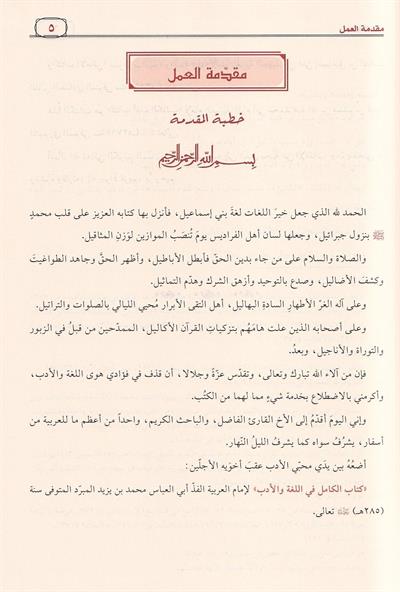 مقدمة العمل
٥
مقدّمة العمل
خطبة المقدمة
بِسْمِ اللهِ الرَّحْمَنِ الرَّحِيمِ
الحمد لله الذي جعل خيرَ اللغات لغةَ بني إسماعيل، فأنزل بها كتابه العزيز على قلب محمدٍ
ﷺ بنزول جبرائيل، وجعلها لسان أهل الفراديس يومَ تُنصَبُ الموازين لوَزنِ المثاقيل.
والصلاة والسلام على من جاء بدين الحقّ فأبطل الأباطيل، وأظهر الحقَّ وجاهد الطواغيتَ
وكشفَ الأضاليل، وصدع بالتوحيد وأزهق الشرك وهدّم التماثيل.
وعلى آله الغرّ الأطهارِ السادةِ البهاليل، أهل التقى الأبرار مُحيي الليالي بالصلوات والتراتيل.
وعلى أصحابه الذين علت هامَهُم بتزكياتِ القرآن الأكاليل، الممدّحين من قبلُ في الزبور
والتوراة والأناجيل، وبعدُ.
فإن من آلاء الله تبارك وتعالى، وتقدّس عزّةً وجلالا، أن قذف في فؤادي هوى اللغة والأدب،
وأكرمني بالاضطلاع بخدمة شيءٍ مما لهما من الكتُب.
وإني اليومَ أقدّمُ إلى الأخ القارئ الفاضل، والباحث الكريم، واحداً من أعظم ما للعربية من
أسفار، يشرُفُ سواه كما يشرفُ الليلُ النّهار.
أضعُهُ بين يدَي محبّي الأدب عقبَ أخوَيه الأجلّين:
«كتاب الكامل في اللغة والأدب» لإمام العربية الفذّ أبي العباس محمد بن يزيد المبرّد المتوفى سنة
(٢٨٥هـ) تعالى.